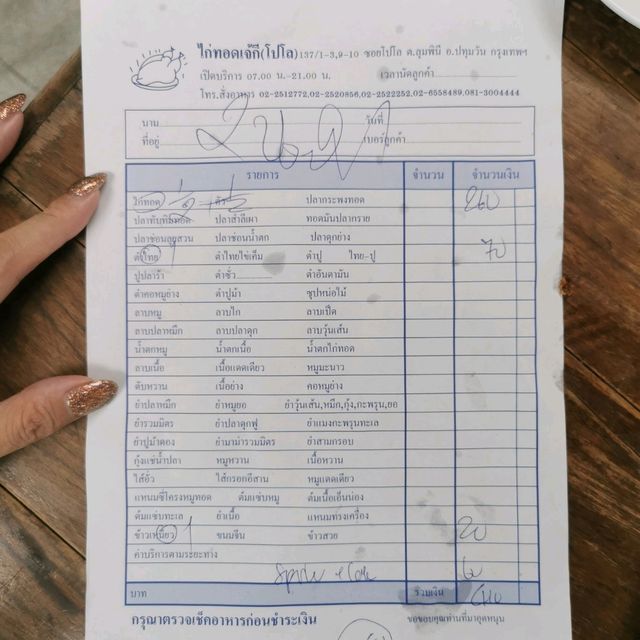 ไก่ทอดเจ๊กี(โปโล) 137/1-3,9-10 ซอยโปโล ต.ลุมพินี อ.ปทุมวัน กรุงเทพฯ
เปิดบริการ 07.00 น.-21.00 น. เวลานัดลูกค้า
โทร.สั่งอาหาร 02-2512772,02-2520856,02-2522252,02-6558489,081-3004444
นาม วันที่
ที่อยู่ เบอร์ลูกค้า
รายการ จำนวน จำนวนเงิน
ไก่ทอด ปลากะพงทอด 260
ปลาทับทิมทอด ปลาสำลีเผา ทอดมันปลากราย
ปลาช่อนลุยสวน ปลาช่อนน้ำตก ปลาดุกย่าง
ตำไทย ตำไทยไข่เค็ม ตำปู ไทย-ปู 70
ปูปลาร้า ตำซั่ว ตำอันดามัน
ตำคอหมูย่าง ตำปูม้า ซุปหน่อไม้
ลาบหมู ลาบไก่ ลาบเป็ด
ลาบปลาหมึก ลาบปลาดุก ลาบวุ้นเส้น
น้ำตกหมู น้ำตกเนื้อ น้ำตกไก่ทอด
ลาบเนื้อ เนื้อแดดเดียว หมูมะนาว
ตับหวาน เนื้อย่าง คอหมูย่าง
ยำปลาหมึก ยำหมูยอ ยำวุ้นเส้น,หมึก,กุ้ง,กะพรุน,ยอ
ยำรวมมิตร ยำปลาดุกฟู ยำแมงกะพรุนทะเล
ยำปูม้าดอง ยำมาม่ารวมมิตร ยำสามกรอบ
กุ้งแช่น้ำปลา หมูหวาน เนื้อหวาน
ไส้อั่ว ไส้กรอกอีสาน หมูแดดเดียว
แหนมซี่โครงหมูทอด ต้มแซ่บหมู ต้มเนื้อเอ็นน่อง
ต้มแซ่บทะเล ยำเนื้อ แหนมทรงเครื่อง
ข้าวเหนียว 1 ขนมจีน ข้าวสวย 20
ค่าบริการตามระยะทาง
บาท รวมเงิน
กรุณาตรวจเช็คอาหารก่อนชำระเงิน ขอขอบคุณท่านที่มาอุดหนุน